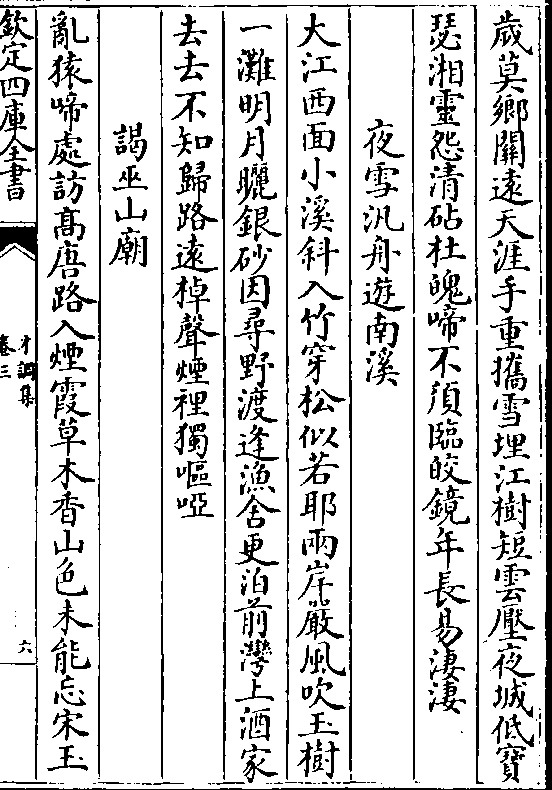 歲莫鄉關遠天涯手重攜雪埋江樹短雲壓夜城低寶
瑟湘靈怨清砧杜魄啼不須臨皎鏡年長易淒淒
夜雪汎舟遊南溪
大江西面小溪斜入竹穿松似若耶兩岸嚴風吹玉樹
一灘明月曬銀砂因尋野渡逢漁舍更泊前灣上酒家
去去不知歸路遠棹聲煙裡獨嘔啞
謁巫山廟
亂猿啼處訪髙唐路入煙霞草木香山色未能忘宋玉
欽定四庫全書
才調集
卷三
六